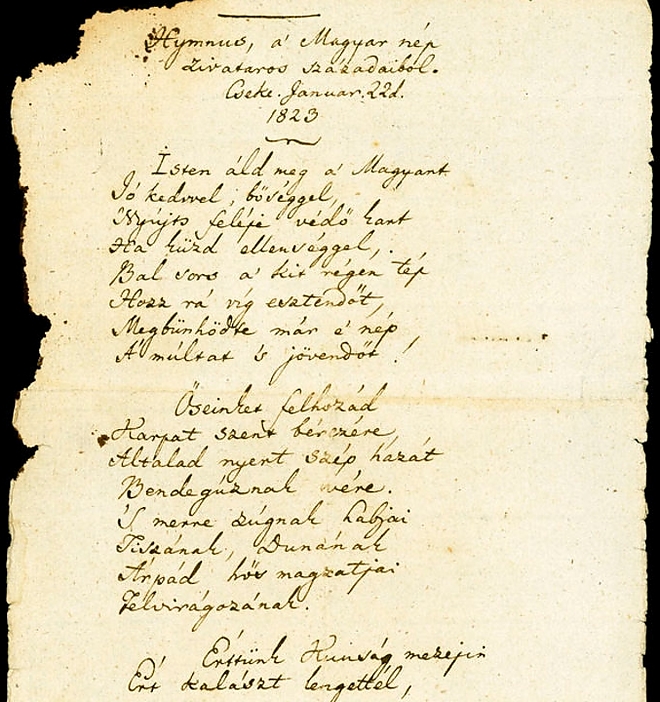 Hymnus, a' Magyar nép
zivataros századaiból.
Cseke. Január. 22d.
1823
Isten áld meg a' Magyart
Jó kedvvel, bőséggel,
Nyújts feléje védő kart
Ha küzd ellenséggel,
Bal sors a' kit régen tép
Hozz rá víg esztendőt,
Megbünhödte már e' nép
A' múltat 's jövendőt!
Őseinket felhozád
Kárpát szent bérczére,
Általad nyert szép hazát
Bendegúznak vére.
'S merre zúgnak habjai
Tiszának, Dunának
Árpád hős magzatjai
Felvirágozának.
Értünk Kunság mezején
Ért kalászt lengettél,